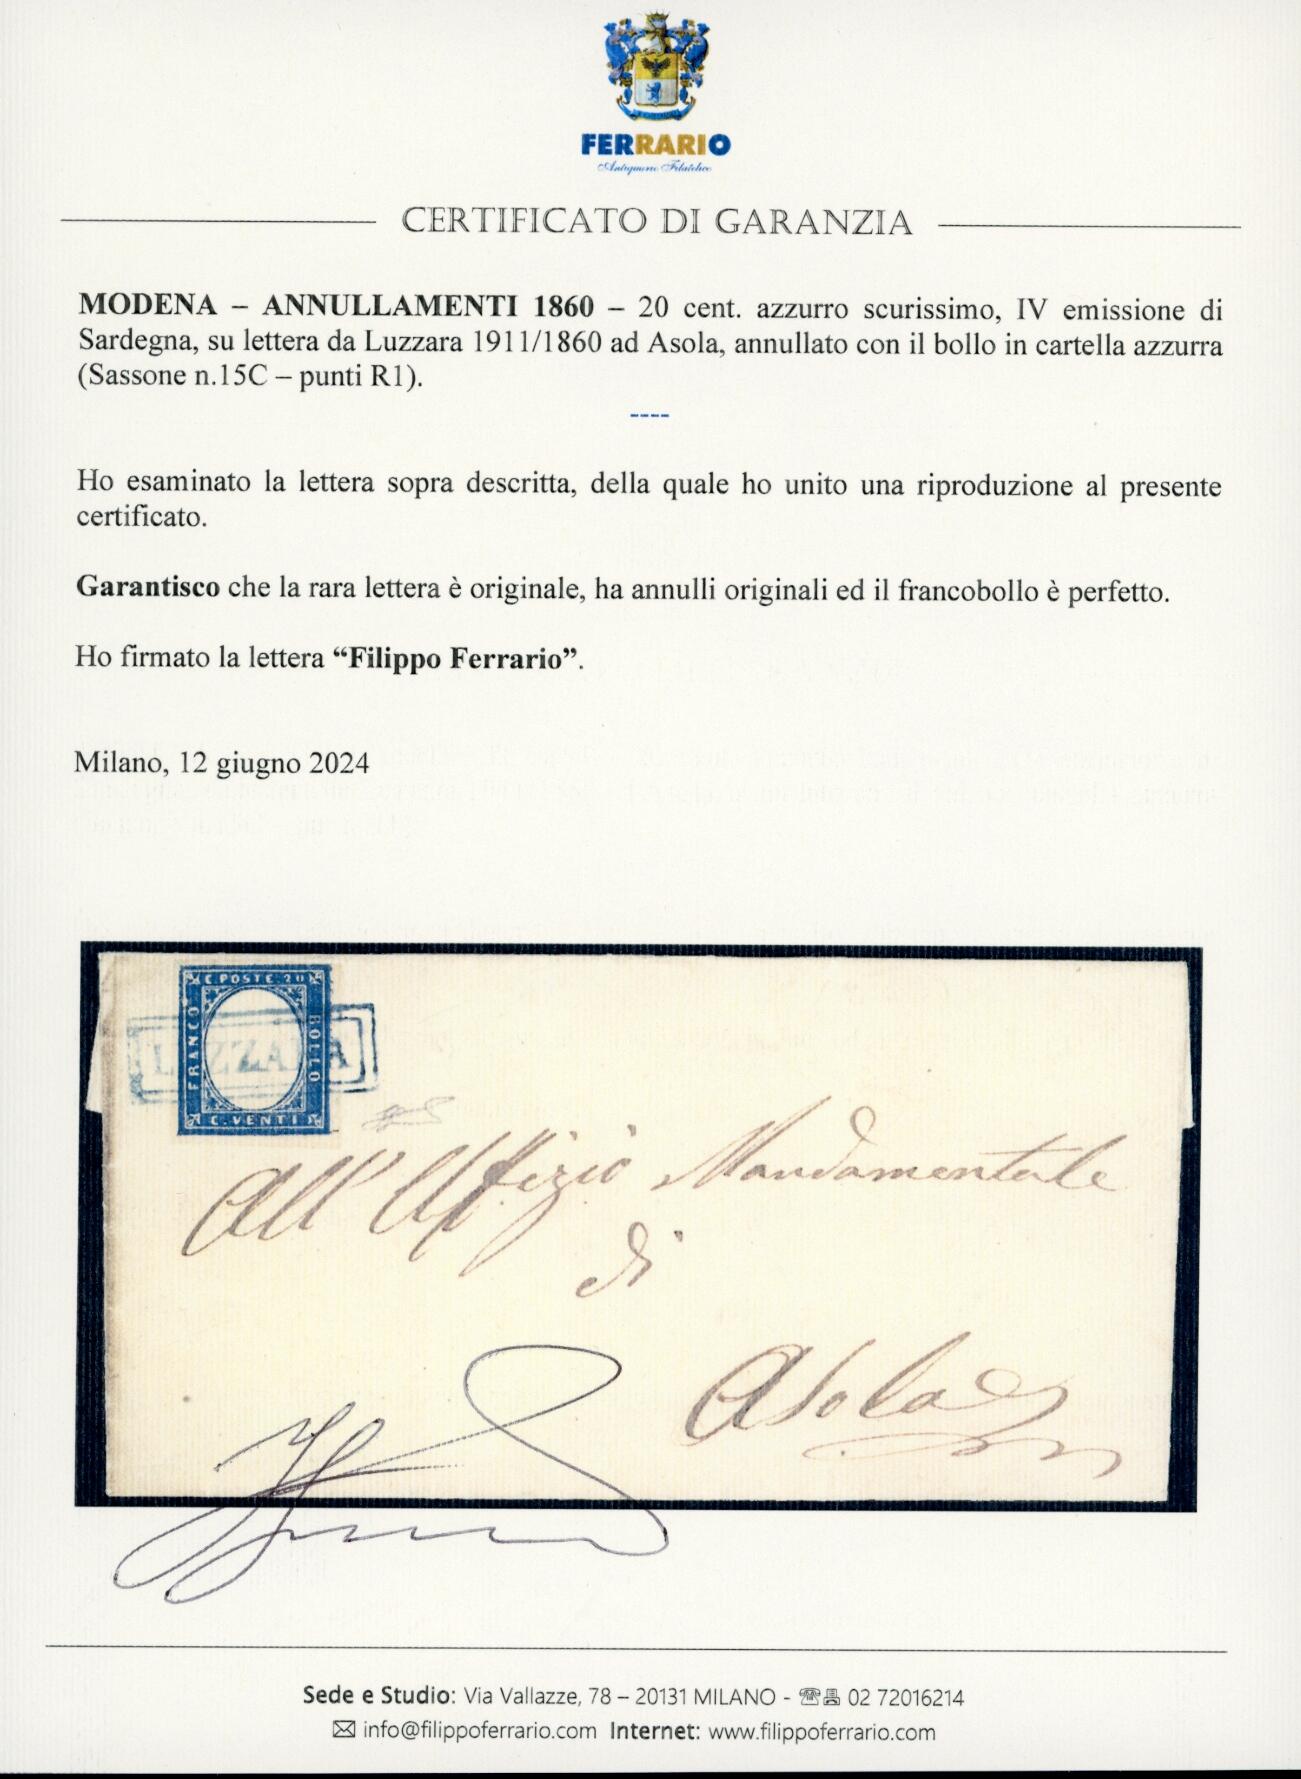 FERRARIO
Antiquario Filatelico
CERTIFICATO DI GARANZIA
MODENA – ANNULLAMENTI 1860 – 20 cent. azzurro scurissimo, IV emissione di
Sardegna, su lettera da Luzzara 1911/1860 ad Asola, annullato con il bollo in cartella azzurra
(Sassone n.15C – punti R1).
----
Ho esaminato la lettera sopra descritta, della quale ho unito una riproduzione al presente
certificato.
Garantisco che la rara lettera è originale, ha annulli originali ed il francobollo è perfetto.
Ho firmato la lettera “Filippo Ferrario”.
Milano, 12 giugno 2024
C POSTE 20
FRANCO
BOLLO
C. VENTI
LUZZARA
All' Uffizio Mandamentale
di
Asola
Sede e Studio: Via Vallazze, 78 – 20131 MILANO - 02 72016214
info@filippoferrario.com Internet: www.filippoferrario.com